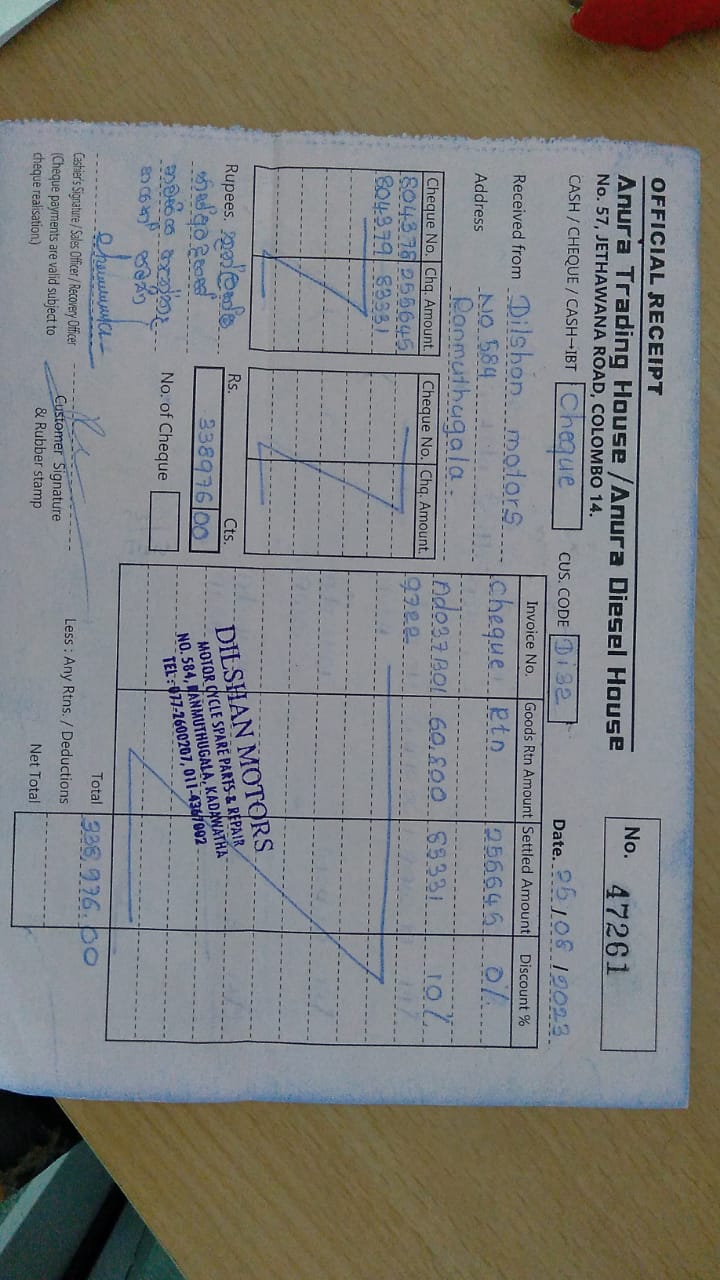 OFFICIAL RECEIPT
Anura Trading House / Anura Diesel House
No. 57, JETHAWANA ROAD, COLOMBO 14.
No. 47261
CASH / CHEQUE / CASH→IBT Cheque
CUS. CODE Di32
Date. 25/08/2023
Received from Dilshan motors
Address No 584
Ranmuthugala.
Cheque No. Chq Amount.
804378 255645
804379 83331
Cheque No. Chq. Amount.
Invoice No. Goods Rtn Amount Settled Amount Discount %
Cheque Rtn 255645 0%
Ad037B01 60,800 83331 10%
9722
Rupees.
Rs. Cts.
338976 00
No. of Cheque
DILSHAN MOTORS
MOTOR CYCLE SPARE PARTS & REPAIR
NO. 584, RANMUTHUGALA, KADAWATHA
TEL : 077-2600207, 011-4367092
Total 338,976.00
Less : Any Rtns. / Deductions
Net Total
Cashier's Signature / Sales Officer / Recovery Officer
(Cheque payments are valid subject to
cheque realisation.)
Customer Signature
& Rubber stamp